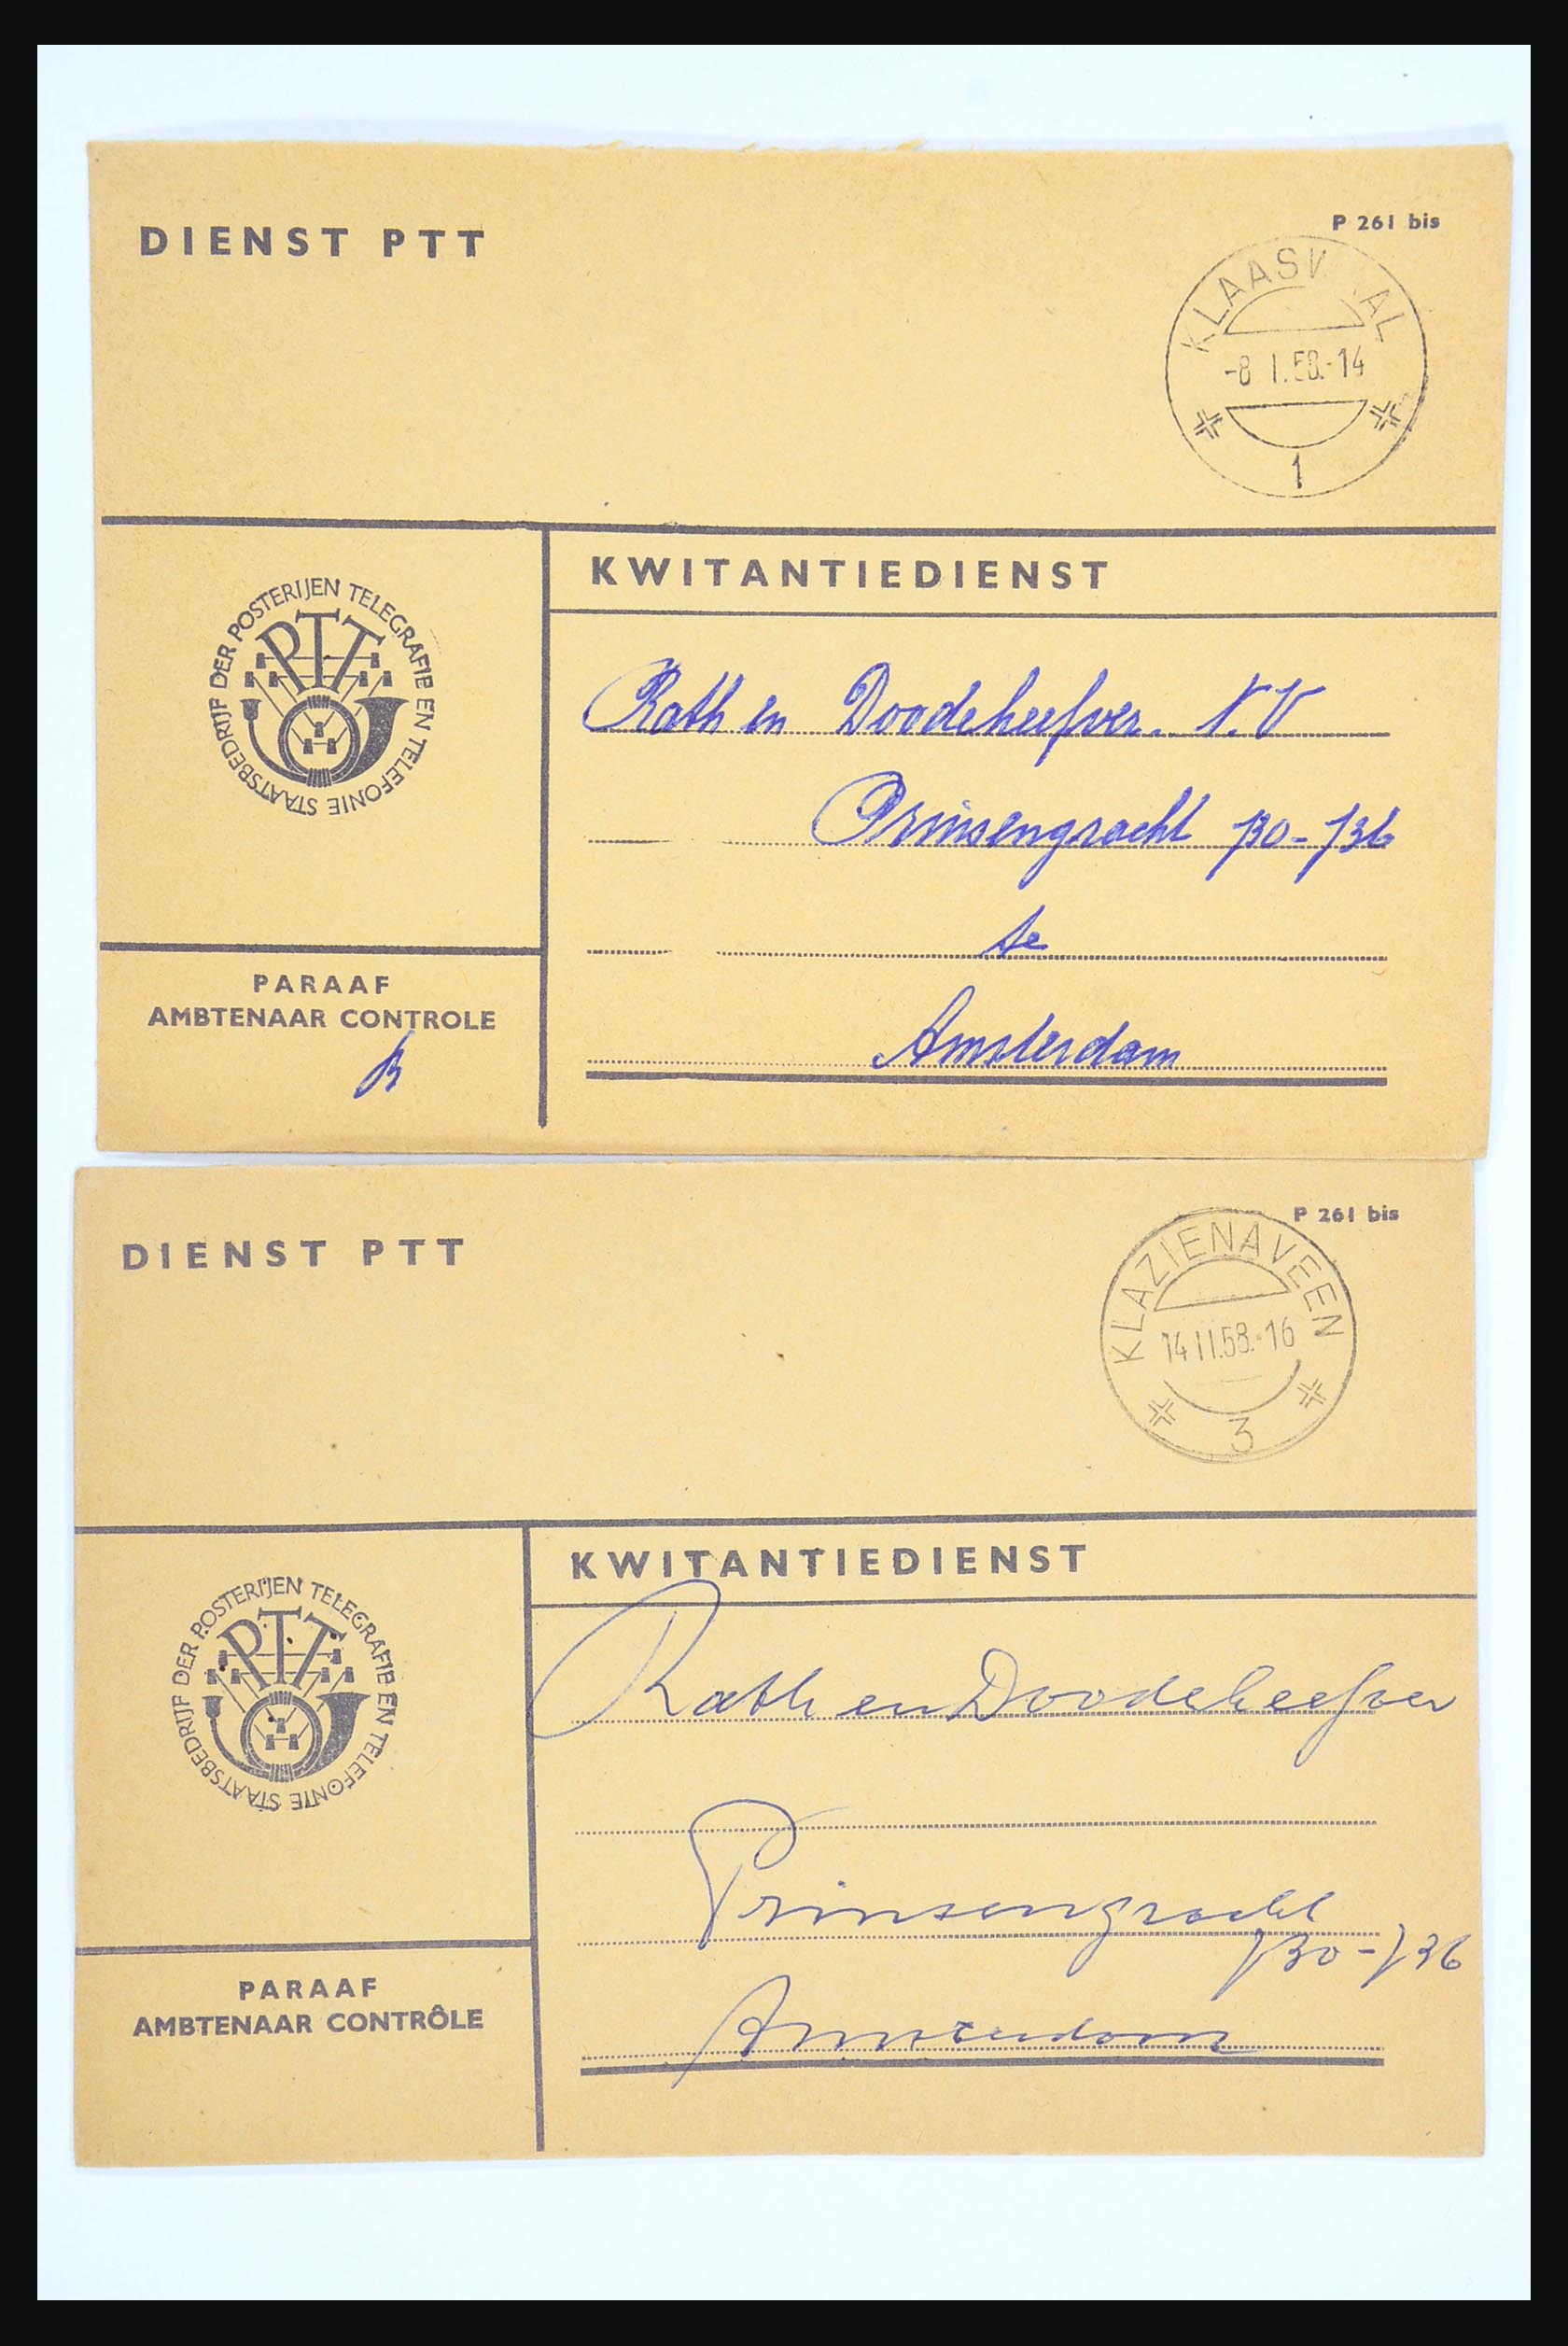 DIENST PTT
P 261 bis
KLAASWAAL
-8 I.58.-14
1
KWITANTIEDIENST
STAATSBEDRIJF DER POSTERIJEN TELEGRAFIE EN TELEFONIE
PTT
Rath en Doodeheefver. N.V
Prinsengracht 730-736
te
Amsterdam
PARAAF
AMBTENAAR CONTROLE
DIENST PTT
P 261 bis
KLAZIENAVEEN
14 II.58.-16
3
KWITANTIEDIENST
STAATSBEDRIJF DER POSTERIJEN TELEGRAFIE EN TELEFONIE
PTT
Rath en Doodeheefver
Prinsengracht
730-736
Amsterdam
PARAAF
AMBTENAAR CONTRÔLE